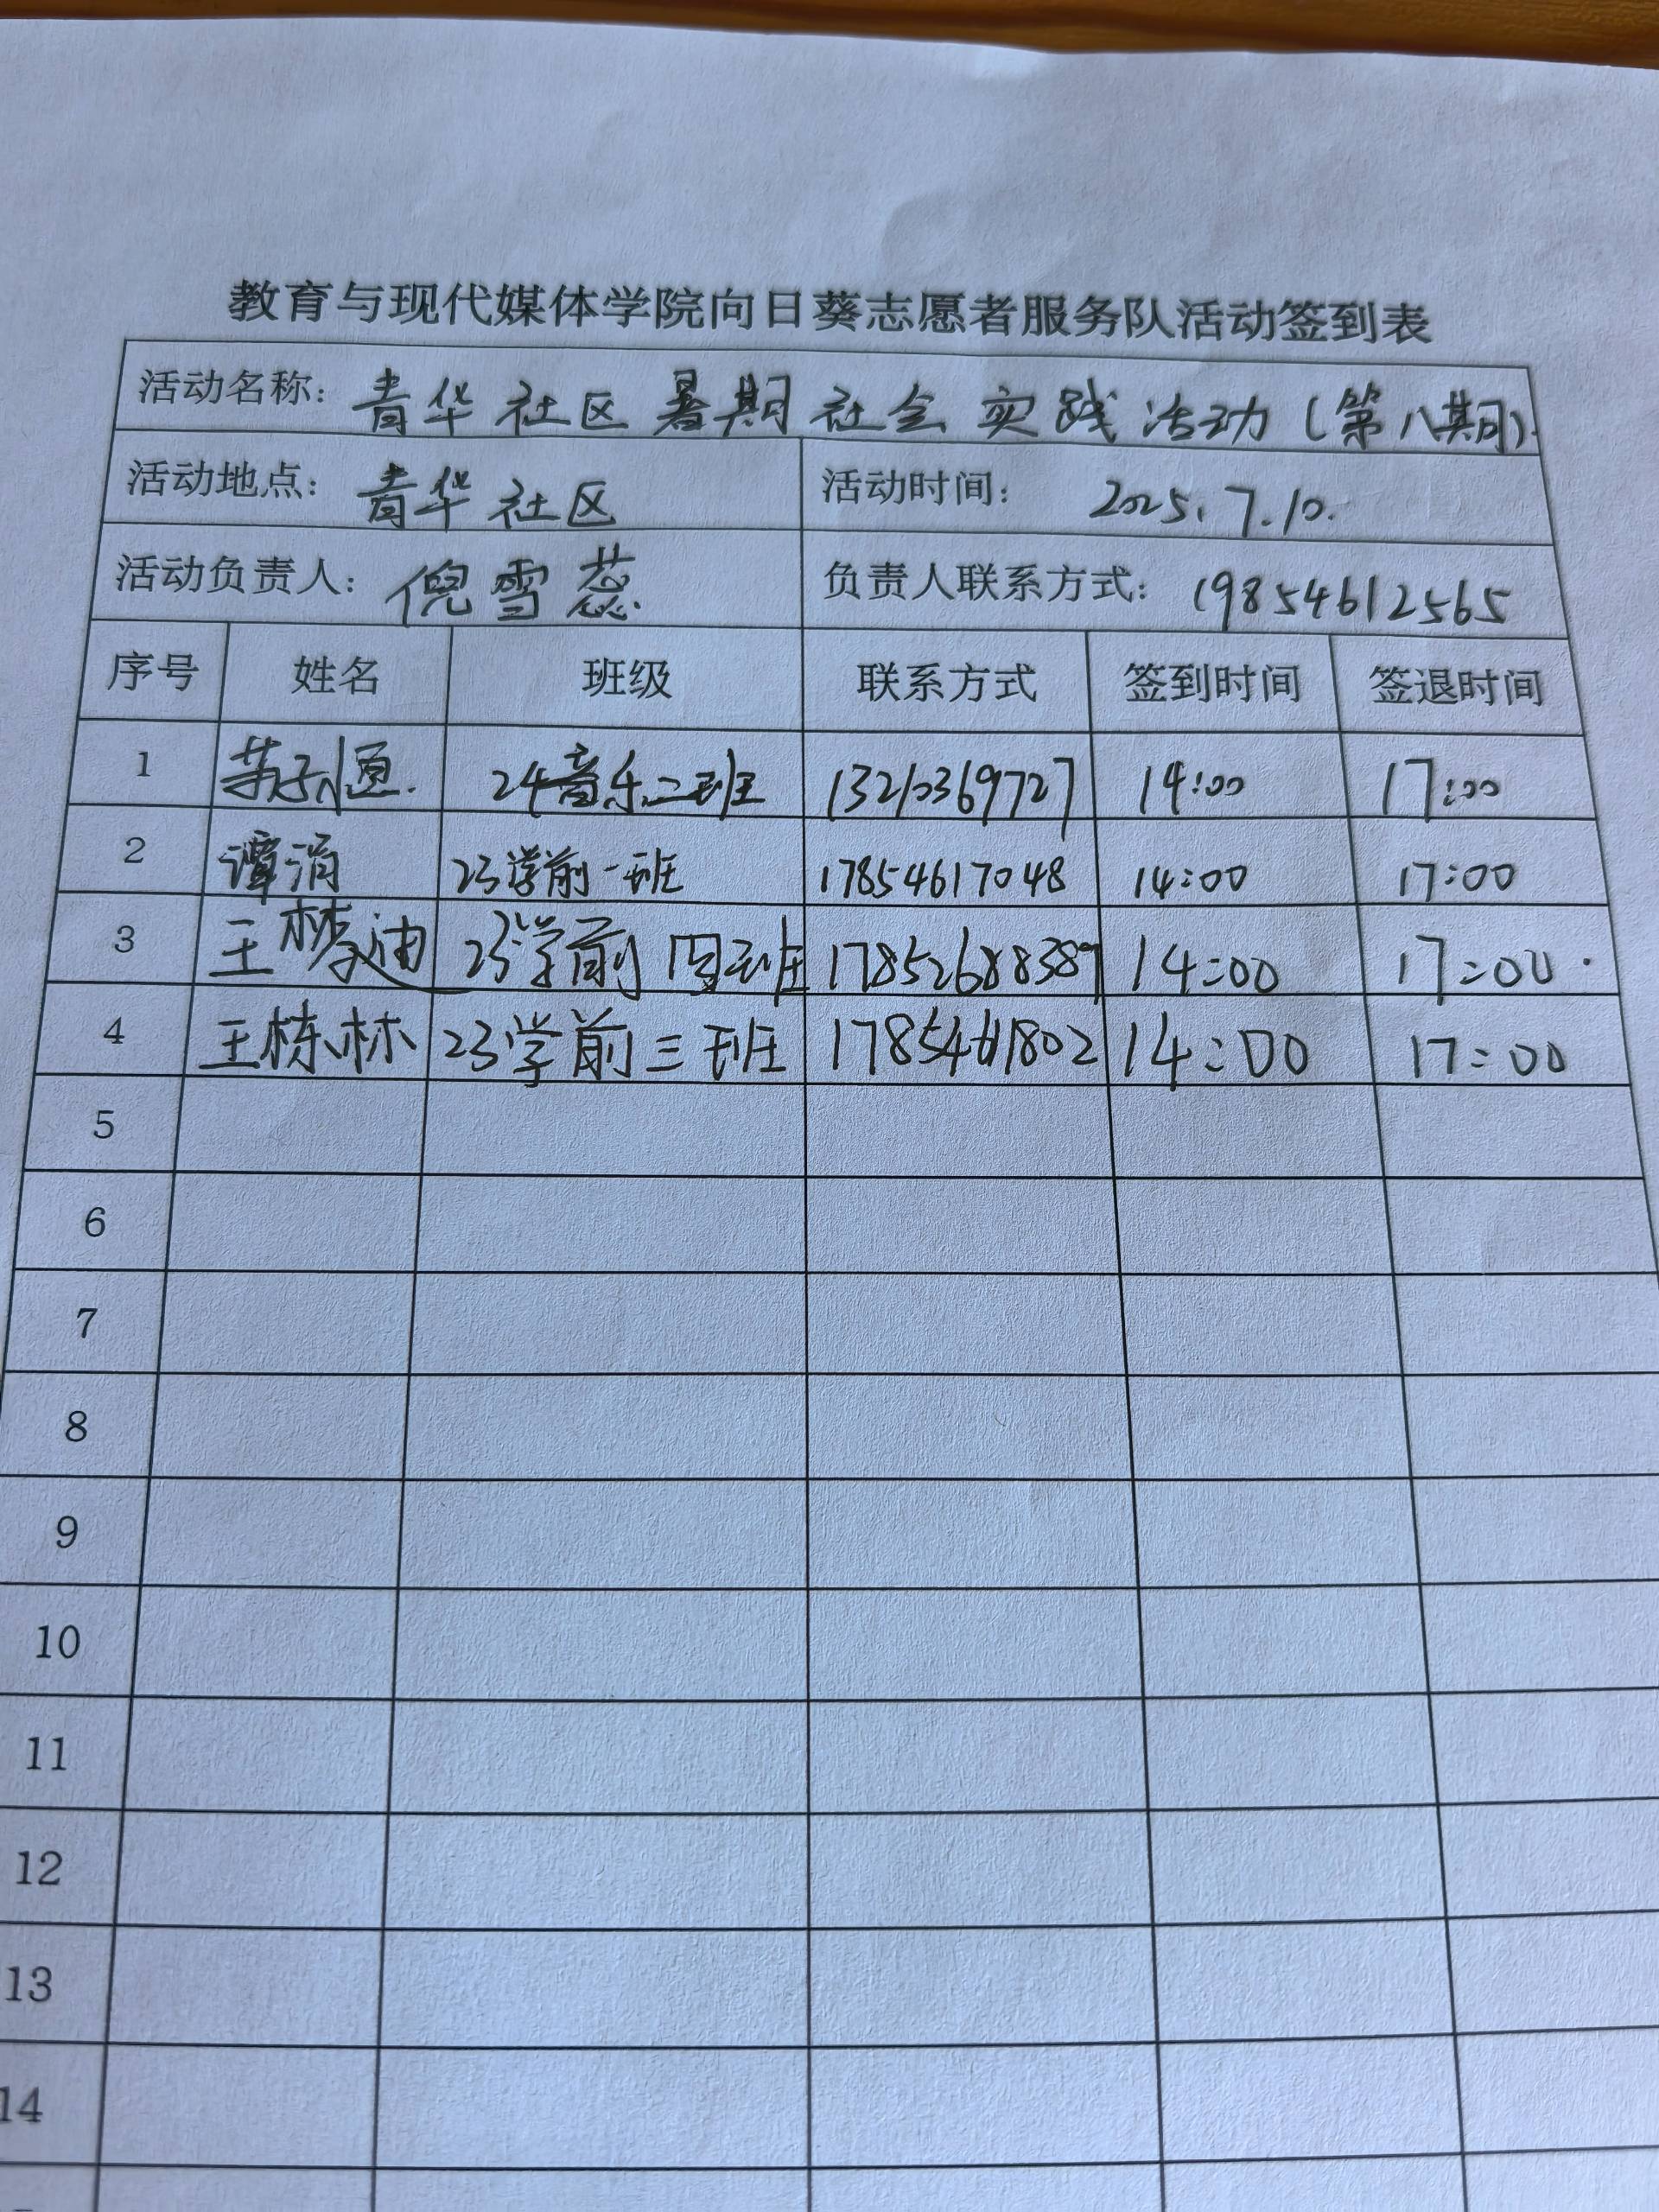 教育与现代媒体学院向日葵志愿者服务队活动签到表
活动名称：青华社区暑期社会实践活动（第八期）.
活动地点：青华社区 活动时间：2025.7.10.
活动负责人：倪雪蕊 负责人联系方式：19854612565
序号 姓名 班级 联系方式 签到时间 签退时间
1 24音乐二班 13210369727 14:00 17:00
2 谭涓 23学前一班 17854617048 14:00 17:00
3 王梦迪 23学前四班 17852688389 14:00 17:00
4 王栋林 23学前三班 14:00 17:00
5
6
7
8
9
10
11
12
13
14